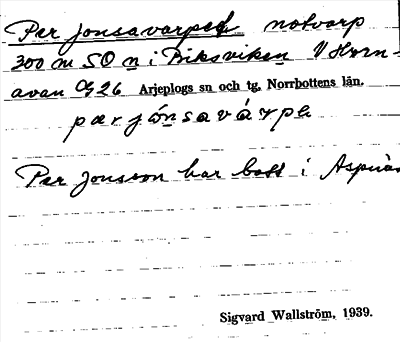 Per Jonsavarpet notvarp
300 m SO n i Riksviken V Horn-
avan Og 26 Arjeplogs sn och tg, Norrbottens län.
pær jó̱nsavárpe
Per Jonsson har bott i Aspnäs
Sigvard Wallström, 1939.